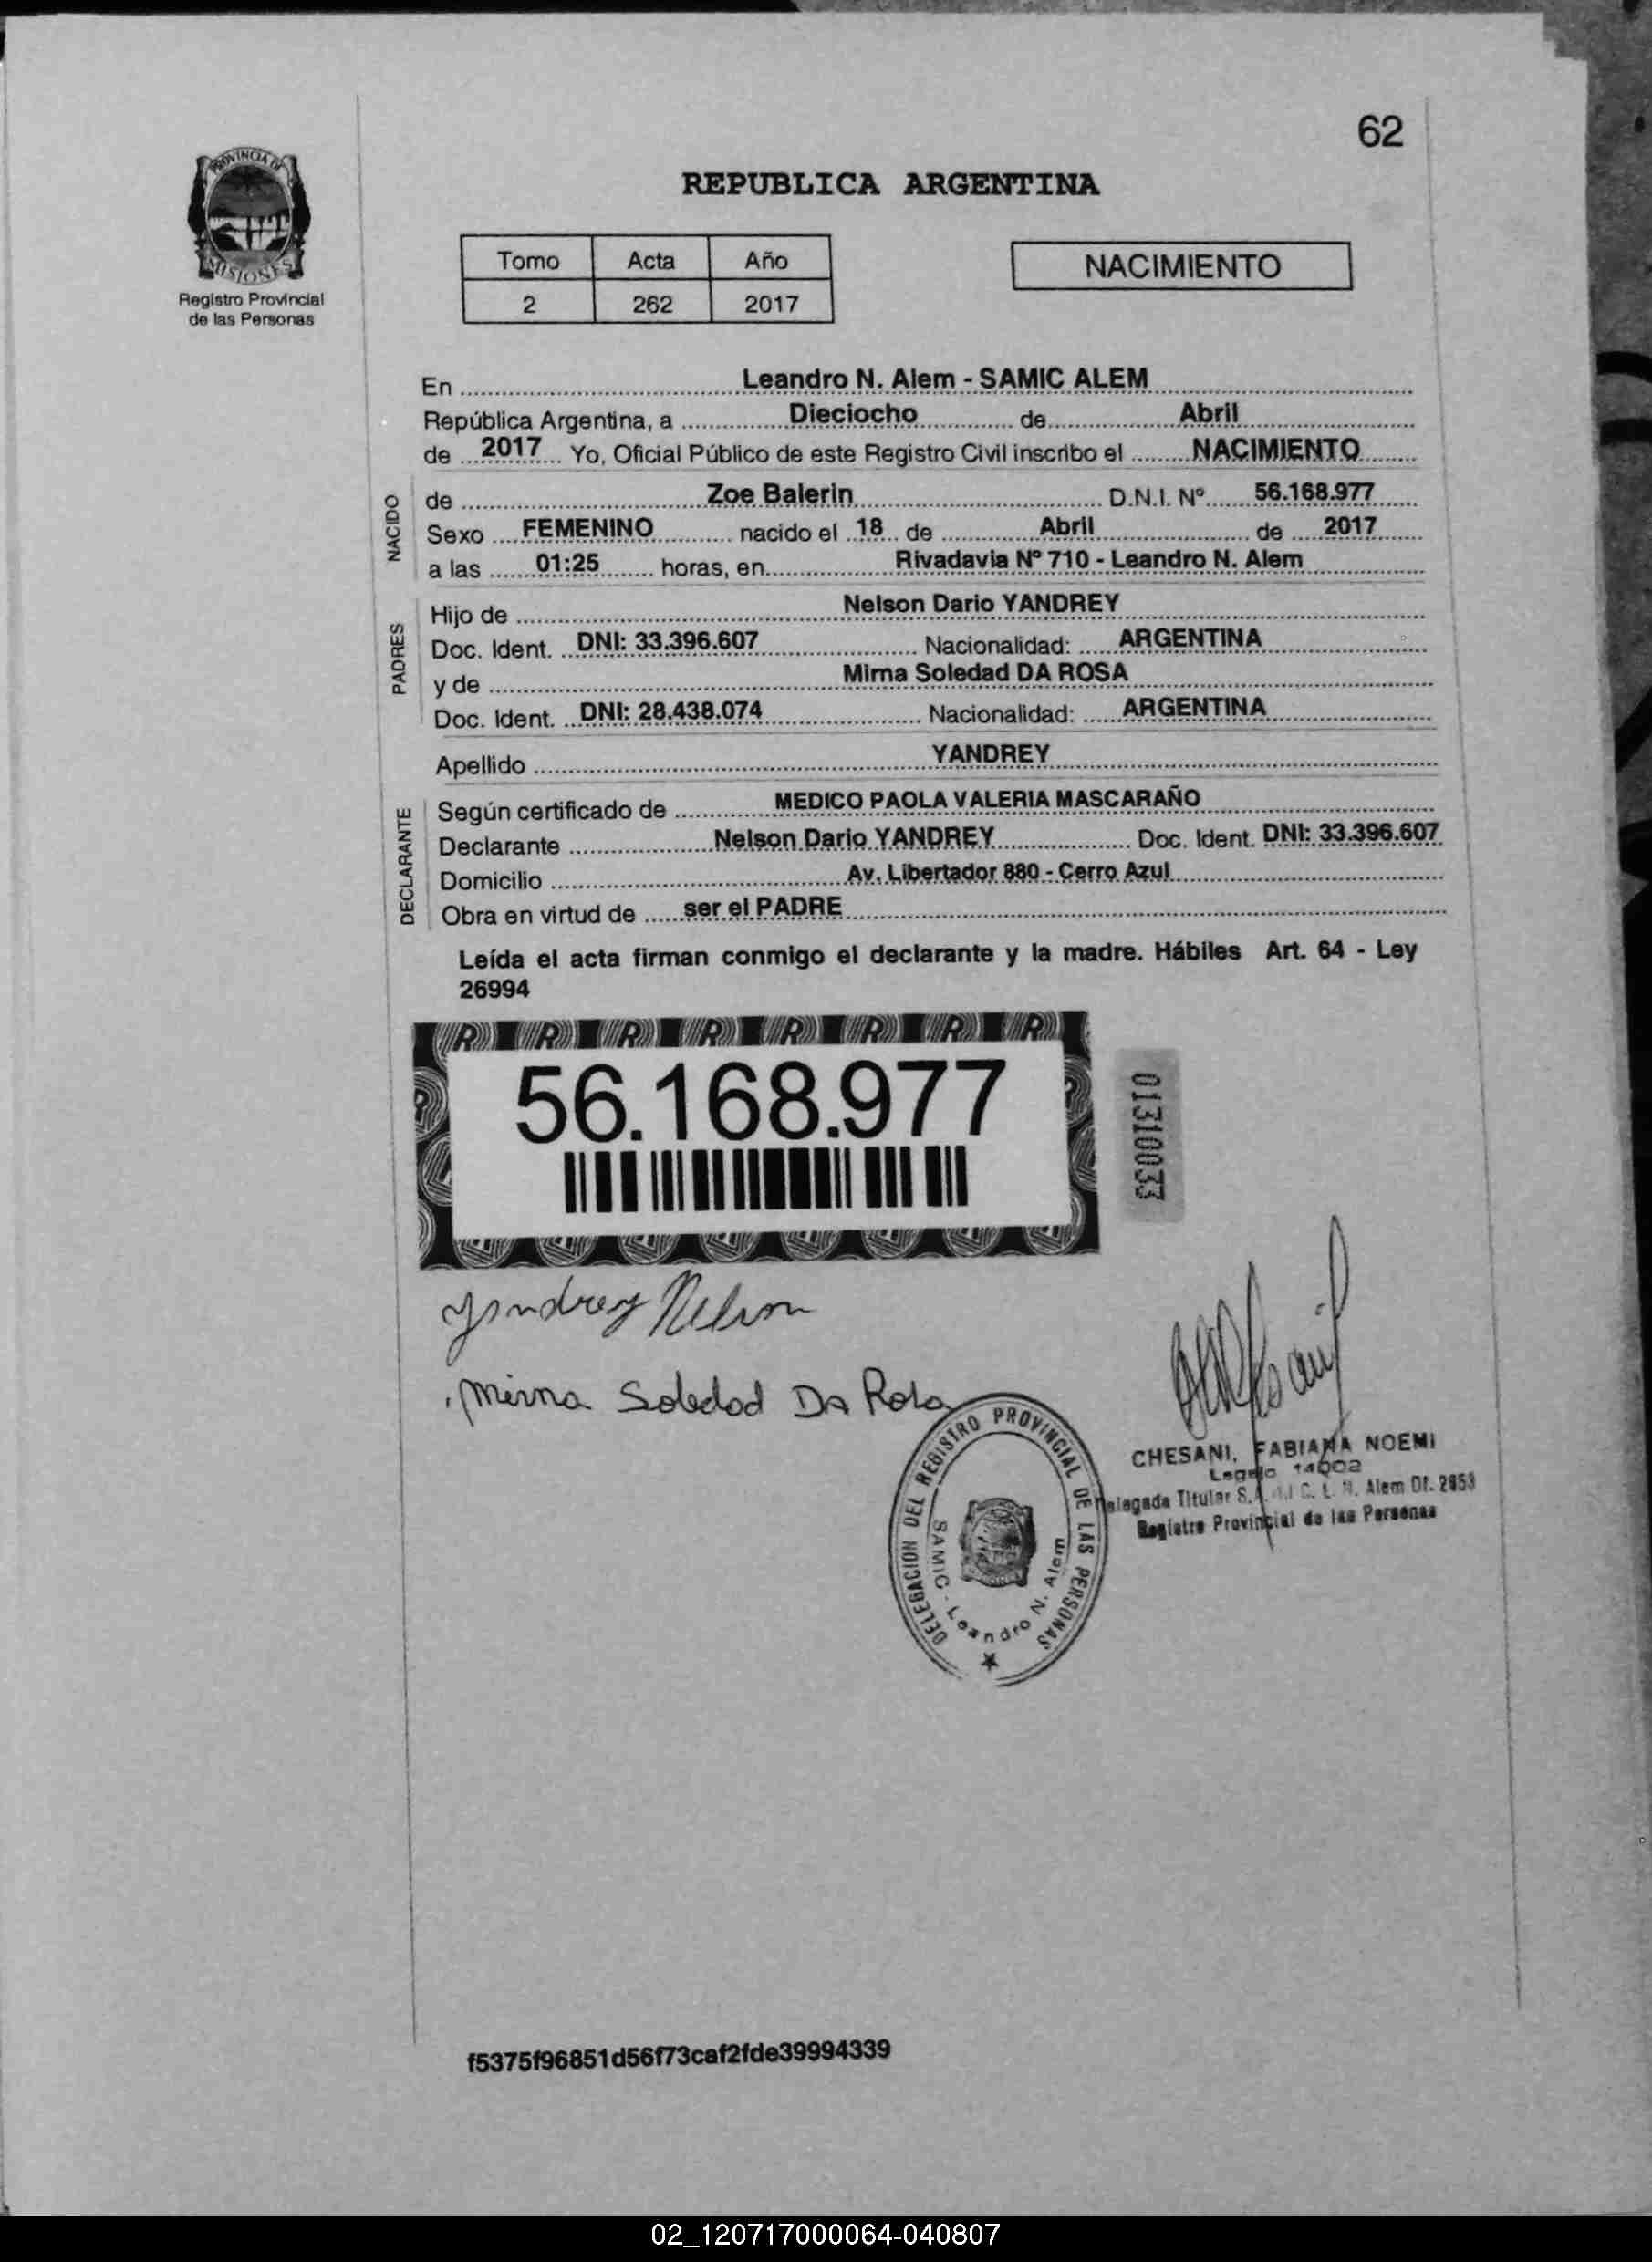 62
PROVINCIA DE
MISIONES
Registro Provincial
de las Personas
REPUBLICA ARGENTINA
Tomo Acta Año
2 262 2017
NACIMIENTO
En Leandro N. Alem - SAMIC ALEM
República Argentina, a Dieciocho de Abril
de 2017 Yo, Oficial Público de este Registro Civil inscribo el NACIMIENTO
NACIDO
de Zoe Balerin D.N.I. Nº 56.168.977
Sexo FEMENINO nacido el 18 de Abril de 2017
a las 01:25 horas, en Rivadavia Nº 710 - Leandro N. Alem
PADRES
Hijo de Nelson Dario YANDREY
Doc. Ident. DNI: 33.396.607 Nacionalidad: ARGENTINA
y de Mirna Soledad DA ROSA
Doc. Ident. DNI: 28.438.074 Nacionalidad: ARGENTINA
Apellido YANDREY
DECLARANTE
Según certificado de MEDICO PAOLA VALERIA MASCARAÑO
Declarante Nelson Dario YANDREY Doc. Ident. DNI: 33.396.607
Domicilio Av. Libertador 880 - Cerro Azul
Obra en virtud de ser el PADRE
Leída el acta firman conmigo el declarante y la madre. Hábiles Art. 64 - Ley
26994
56.168.977
01310033
Yandrey Nelson
Mirna Soledad Da Rosa
CHESANI, FABIANA NOEMI
Legajo 14002
Delegada Titular L. N. Alem Of. 2853
Registro Provincial de las Personas
DELEGACION DEL REGISTRO PROVINCIAL DE LAS PERSONAS
SAMIC - Leandro N. Alem
f5375f96851d56f73caf2fde39994339
02_120717000064-040807